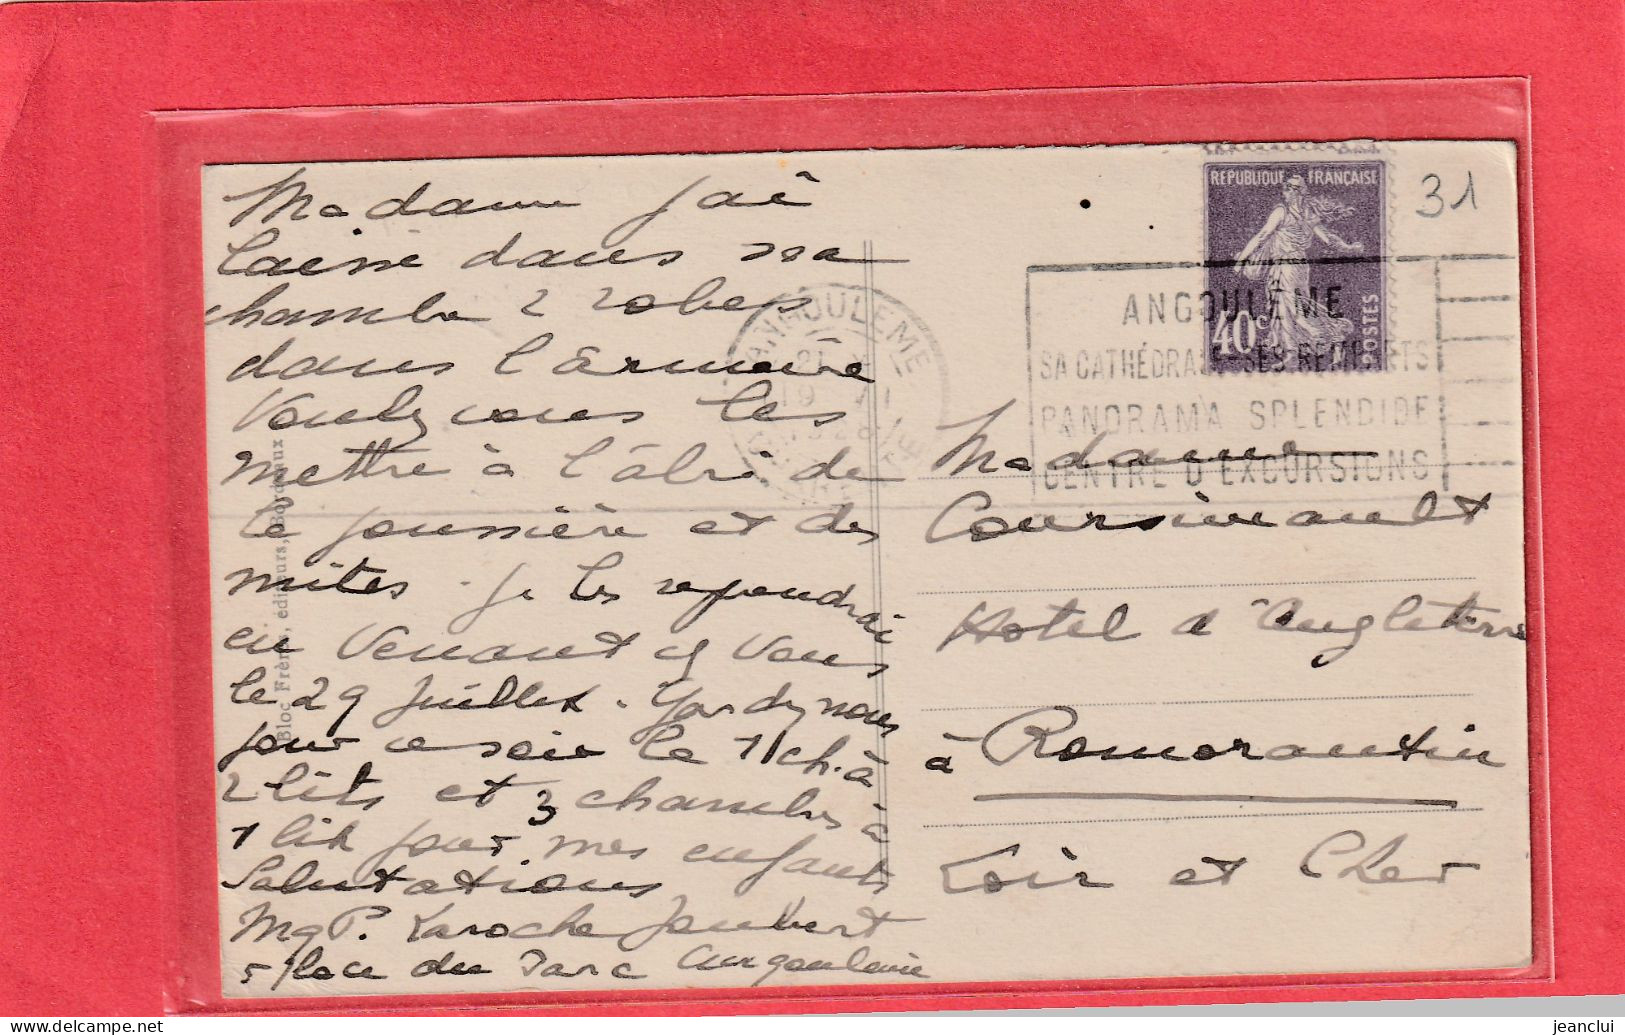 Madame j'ai
laissé dans ma
chambre 2 robes
dans l'armoire
Voulez vous les
mettre à l'abri de
la poussière et des
mites. Je les reprendrai
en venant chez vous
le 29 Juillet. Gardez nous
pour ce soir là 1 ch. à
2 lits et 3 chambres à
1 lit pour mes enfants
Salutations
P. Laroche Joubert
5 place du Parc Angoulême
Bloc Frères, éditeurs, Bordeaux
ANGOULEME
REPUBLIQUE FRANÇAISE
40c
POSTES
31
ANGOULÊME
SA CATHÉDRALE SES REMPARTS
PANORAMA SPLENDIDE
CENTRE D'EXCURSIONS
Madame
Coursimault
Hotel d'Angleterre
à Romorantin
Loir et Cher
www.delcampe.net
jeanclui